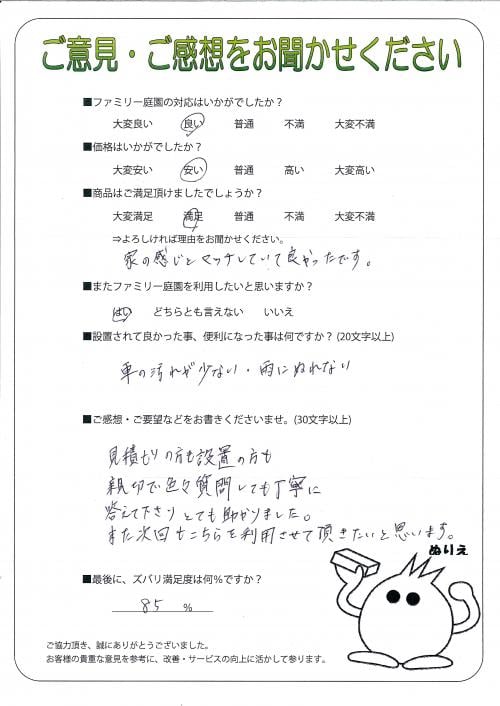 ご意見・ご感想をお聞かせください
■ファミリー庭園の対応はいかがでしたか？
大変良い 良い 普通 不満 大変不満
■価格はいかがでしたか？
大変安い 安い 普通 高い 大変高い
■商品はご満足頂けましたでしょうか？
大変満足 満足 普通 不満 大変不満
⇒よろしければ理由をお聞かせください。
家の感じとマッチしていて良かったです。
■またファミリー庭園を利用したいと思いますか？
はい どちらとも言えない いいえ
■設置されて良かった事、便利になった事は何ですか？(20文字以上)
車の汚れが少ない・雨にぬれない
■ご感想・ご要望などをお書きくださいませ。(30文字以上)
見積もりの方も設置の方も
親切で色々質問しても丁寧に
答えて下さりとても助かりました。
また次回もこちらを利用させて頂きたいと思います。
ぬりえ
■最後に、ズバリ満足度は何％ですか？
85 %
ご協力頂き、誠にありがとうございました。
お客様の貴重な意見を参考に、改善・サービスの向上に活かして参ります。